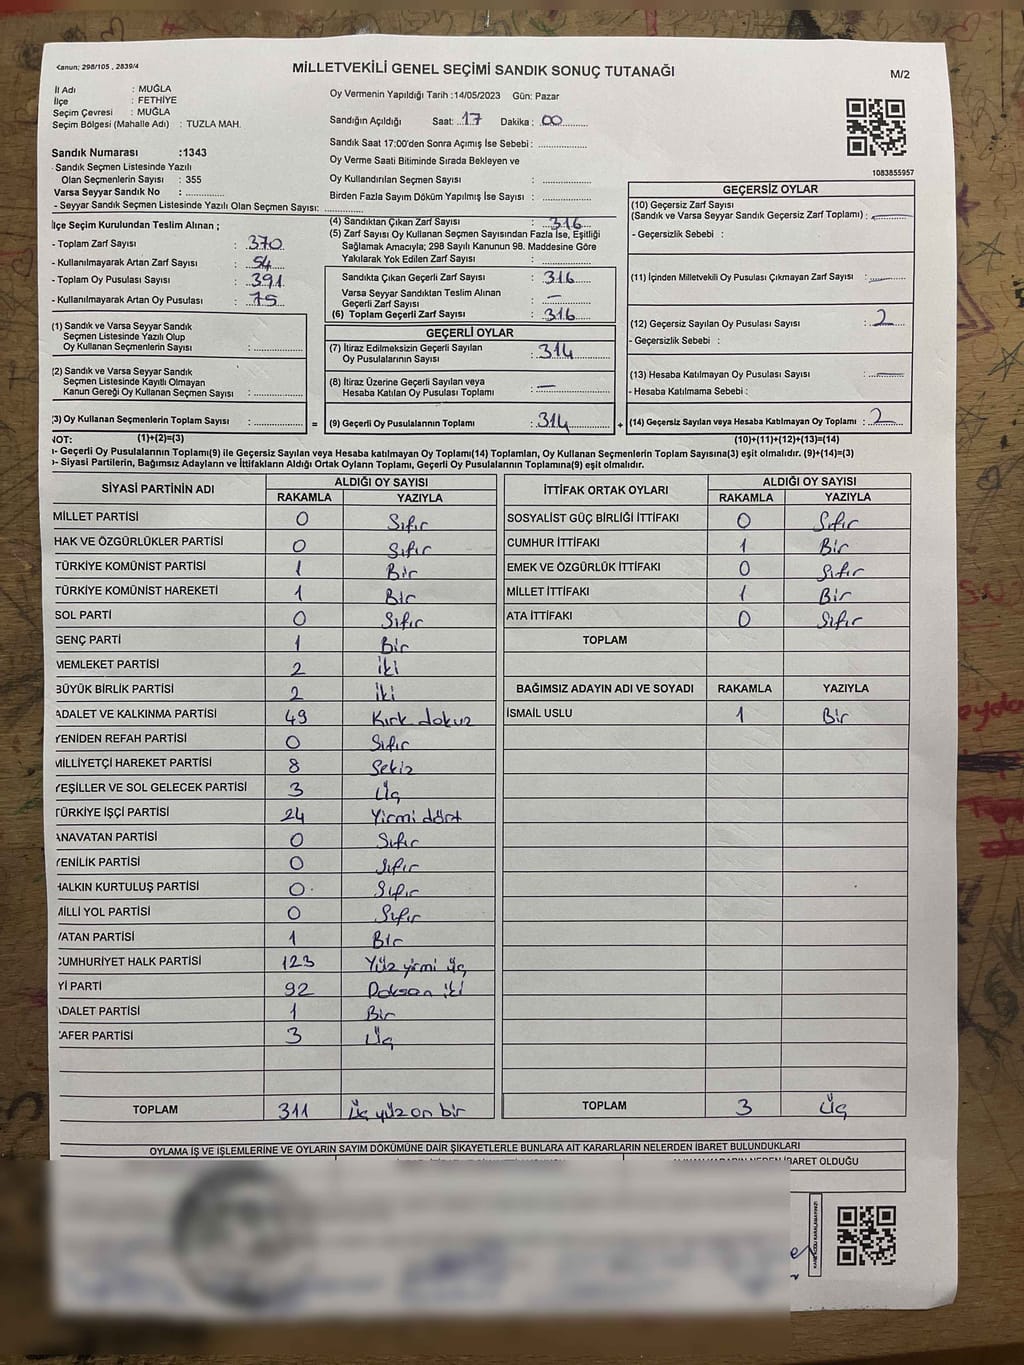 Kanun; 298/105 , 2839/4
MİLLETVEKİLİ GENEL SEÇİMİ SANDIK SONUÇ TUTANAĞI
M/2
İl Adı : MUĞLA
İlçe : FETHİYE
Seçim Çevresi : MUĞLA
Seçim Bölgesi (Mahalle Adı) : TUZLA MAH.
Sandık Numarası :1343
Sandık Seçmen Listesinde Yazılı
Olan Seçmenlerin Sayısı : 355
Varsa Seyyar Sandık No :
- Seyyar Sandık Seçmen Listesinde Yazılı Olan Seçmen Sayısı:
Oy Vermenin Yapıldığı Tarih :14/05/2023 Gün: Pazar
Sandığın Açıldığı Saat: 17 Dakika : 00
Sandık Saat 17:00'den Sonra Açımış İse Sebebi :
Oy Verme Saati Bitiminde Sırada Bekleyen ve
Oy Kullandırılan Seçmen Sayısı :
Birden Fazla Sayım Döküm Yapılmış İse Sayısı :
1083855957
İlçe Seçim Kurulundan Teslim Alınan ;
- Toplam Zarf Sayısı : 370
- Kullanılmayarak Artan Zarf Sayısı : 54
- Toplam Oy Pusulası Sayısı : 391
- Kullanılmayarak Artan Oy Pusulası : 75
(1) Sandık ve Varsa Seyyar Sandık
Seçmen Listesinde Yazılı Olup
Oy Kullanan Seçmenlerin Sayısı :
(2) Sandık ve Varsa Seyyar Sandık
Seçmen Listesinde Kayıtlı Olmayan
Kanun Gereği Oy Kullanan Seçmen Sayısı :
3) Oy Kullanan Seçmenlerin Toplam Sayısı :
(4) Sandıktan Çıkan Zarf Sayısı : 316
(5) Zarf Sayısı Oy Kullanan Seçmen Sayısından Fazla İse, Eşitliği
Sağlamak Amacıyla; 298 Sayılı Kanunun 98. Maddesine Göre
Yakılarak Yok Edilen Zarf Sayısı :
Sandıkta Çıkan Geçerli Zarf Sayısı : 316
Varsa Seyyar Sandıktan Teslim Alınan
Geçerli Zarf Sayısı : —
(6) Toplam Geçerli Zarf Sayısı : 316
GEÇERLİ OYLAR
(7) İtiraz Edilmeksizin Geçerli Sayılan
Oy Pusulalarının Sayısı : 314
(8) İtiraz Üzerine Geçerli Sayılan veya
Hesaba Katılan Oy Pusulası Toplamı : —
= (9) Geçerli Oy Pusulalarının Toplamı : 314 +
GEÇERSİZ OYLAR
(10) Geçersiz Zarf Sayısı
(Sandık ve Varsa Seyyar Sandık Geçersiz Zarf Toplamı) : —
- Geçersizlik Sebebi :
(11) İçinden Milletvekili Oy Pusulası Çıkmayan Zarf Sayısı : —
(12) Geçersiz Sayılan Oy Pusulası Sayısı : 2
- Geçersizlik Sebebi :
(13) Hesaba Katılmayan Oy Pusulası Sayısı : —
- Hesaba Katılmama Sebebi :
(14) Geçersiz Sayılan veya Hesaba Katılmayan Oy Toplamı : 2
NOT: (1)+(2)=(3) (10)+(11)+(12)+(13)=(14)
- Geçerli Oy Pusulalarının Toplamı(9) ile Geçersiz Sayılan veya Hesaba katılmayan Oy Toplamı(14) Toplamları, Oy Kullanan Seçmenlerin Toplam Sayısına(3) eşit olmalıdır. (9)+(14)=(3)
- Siyasi Partilerin, Bağımsız Adayların ve İttifakların Aldığı Ortak Oyların Toplamı, Geçerli Oy Pusulalarının Toplamına(9) eşit olmalıdır.
SİYASİ PARTİNİN ADI ALDIĞI OY SAYISI
RAKAMLA YAZIYLA
MİLLET PARTİSİ 0 Sıfır
HAK VE ÖZGÜRLÜKLER PARTİSİ 0 Sıfır
TÜRKİYE KOMÜNİST PARTİSİ 1 Bir
TÜRKİYE KOMÜNİST HAREKETİ 1 Bir
SOL PARTİ 0 Sıfır
GENÇ PARTİ 1 Bir
MEMLEKET PARTİSİ 2 İki
BÜYÜK BİRLİK PARTİSİ 2 İki
ADALET VE KALKINMA PARTİSİ 49 Kırk dokuz
YENİDEN REFAH PARTİSİ 0 Sıfır
MİLLİYETÇİ HAREKET PARTİSİ 8 Sekiz
YEŞİLLER VE SOL GELECEK PARTİSİ 3 Üç
TÜRKİYE İŞÇİ PARTİSİ 24 Yirmi dört
ANAVATAN PARTİSİ 0 Sıfır
YENİLİK PARTİSİ 0 Sıfır
HALKIN KURTULUŞ PARTİSİ 0 Sıfır
MİLLİ YOL PARTİSİ 0 Sıfır
VATAN PARTİSİ 1 Bir
CUMHURİYET HALK PARTİSİ 123 Yüz yirmi üç
İYİ PARTİ 92 Doksan iki
ADALET PARTİSİ 1 Bir
ZAFER PARTİSİ 3 Üç
TOPLAM 311 Üç yüz on bir
İTTİFAK ORTAK OYLARI ALDIĞI OY SAYISI
RAKAMLA YAZIYLA
SOSYALİST GÜÇ BİRLİĞİ İTTİFAKI 0 Sıfır
CUMHUR İTTİFAKI 1 Bir
EMEK VE ÖZGÜRLÜK İTTİFAKI 0 Sıfır
MİLLET İTTİFAKI 1 Bir
ATA İTTİFAKI 0 Sıfır
TOPLAM
BAĞIMSIZ ADAYIN ADI VE SOYADI RAKAMLA YAZIYLA
İSMAİL USLU 1 Bir
TOPLAM 3 Üç
OYLAMA İŞ VE İŞLEMLERİNE VE OYLARIN SAYIM DÖKÜMÜNE DAİR ŞİKAYETLERLE BUNLARA AİT KARARLARIN NELERDEN İBARET BULUNDUKLARI
İBARET OLDUĞU